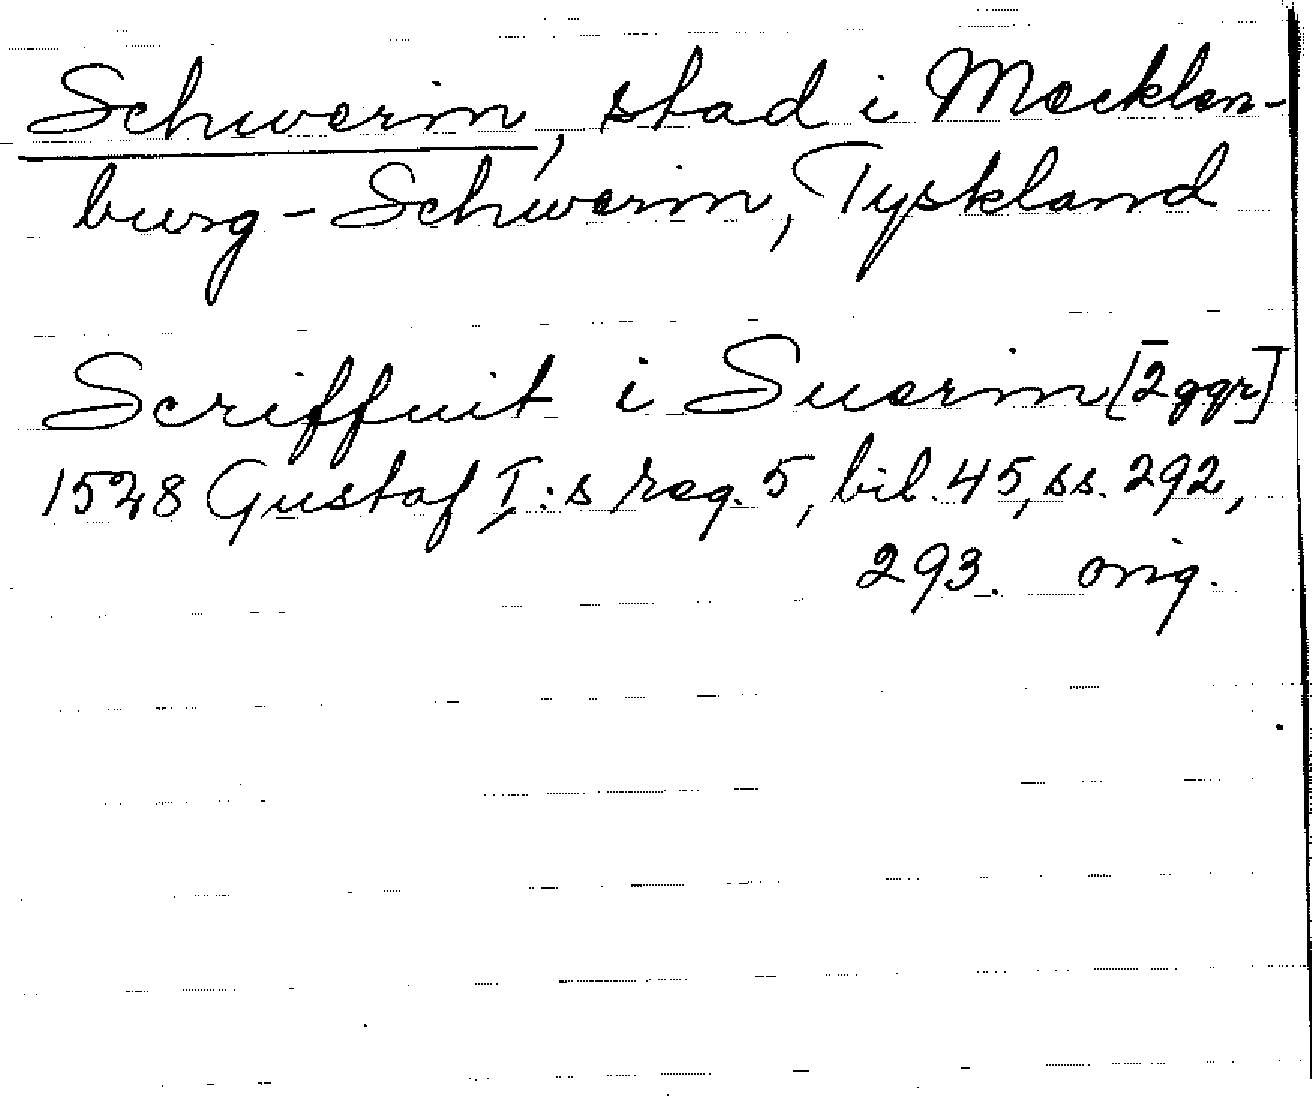 Schwerin, stad i Mecklen-
burg-Schwerin, Tyskland
Scriffuit i Suerin [2 ggr]
1528 Gustaf I:s reg. 5, bil. 45, ss. 292,
293. orig.